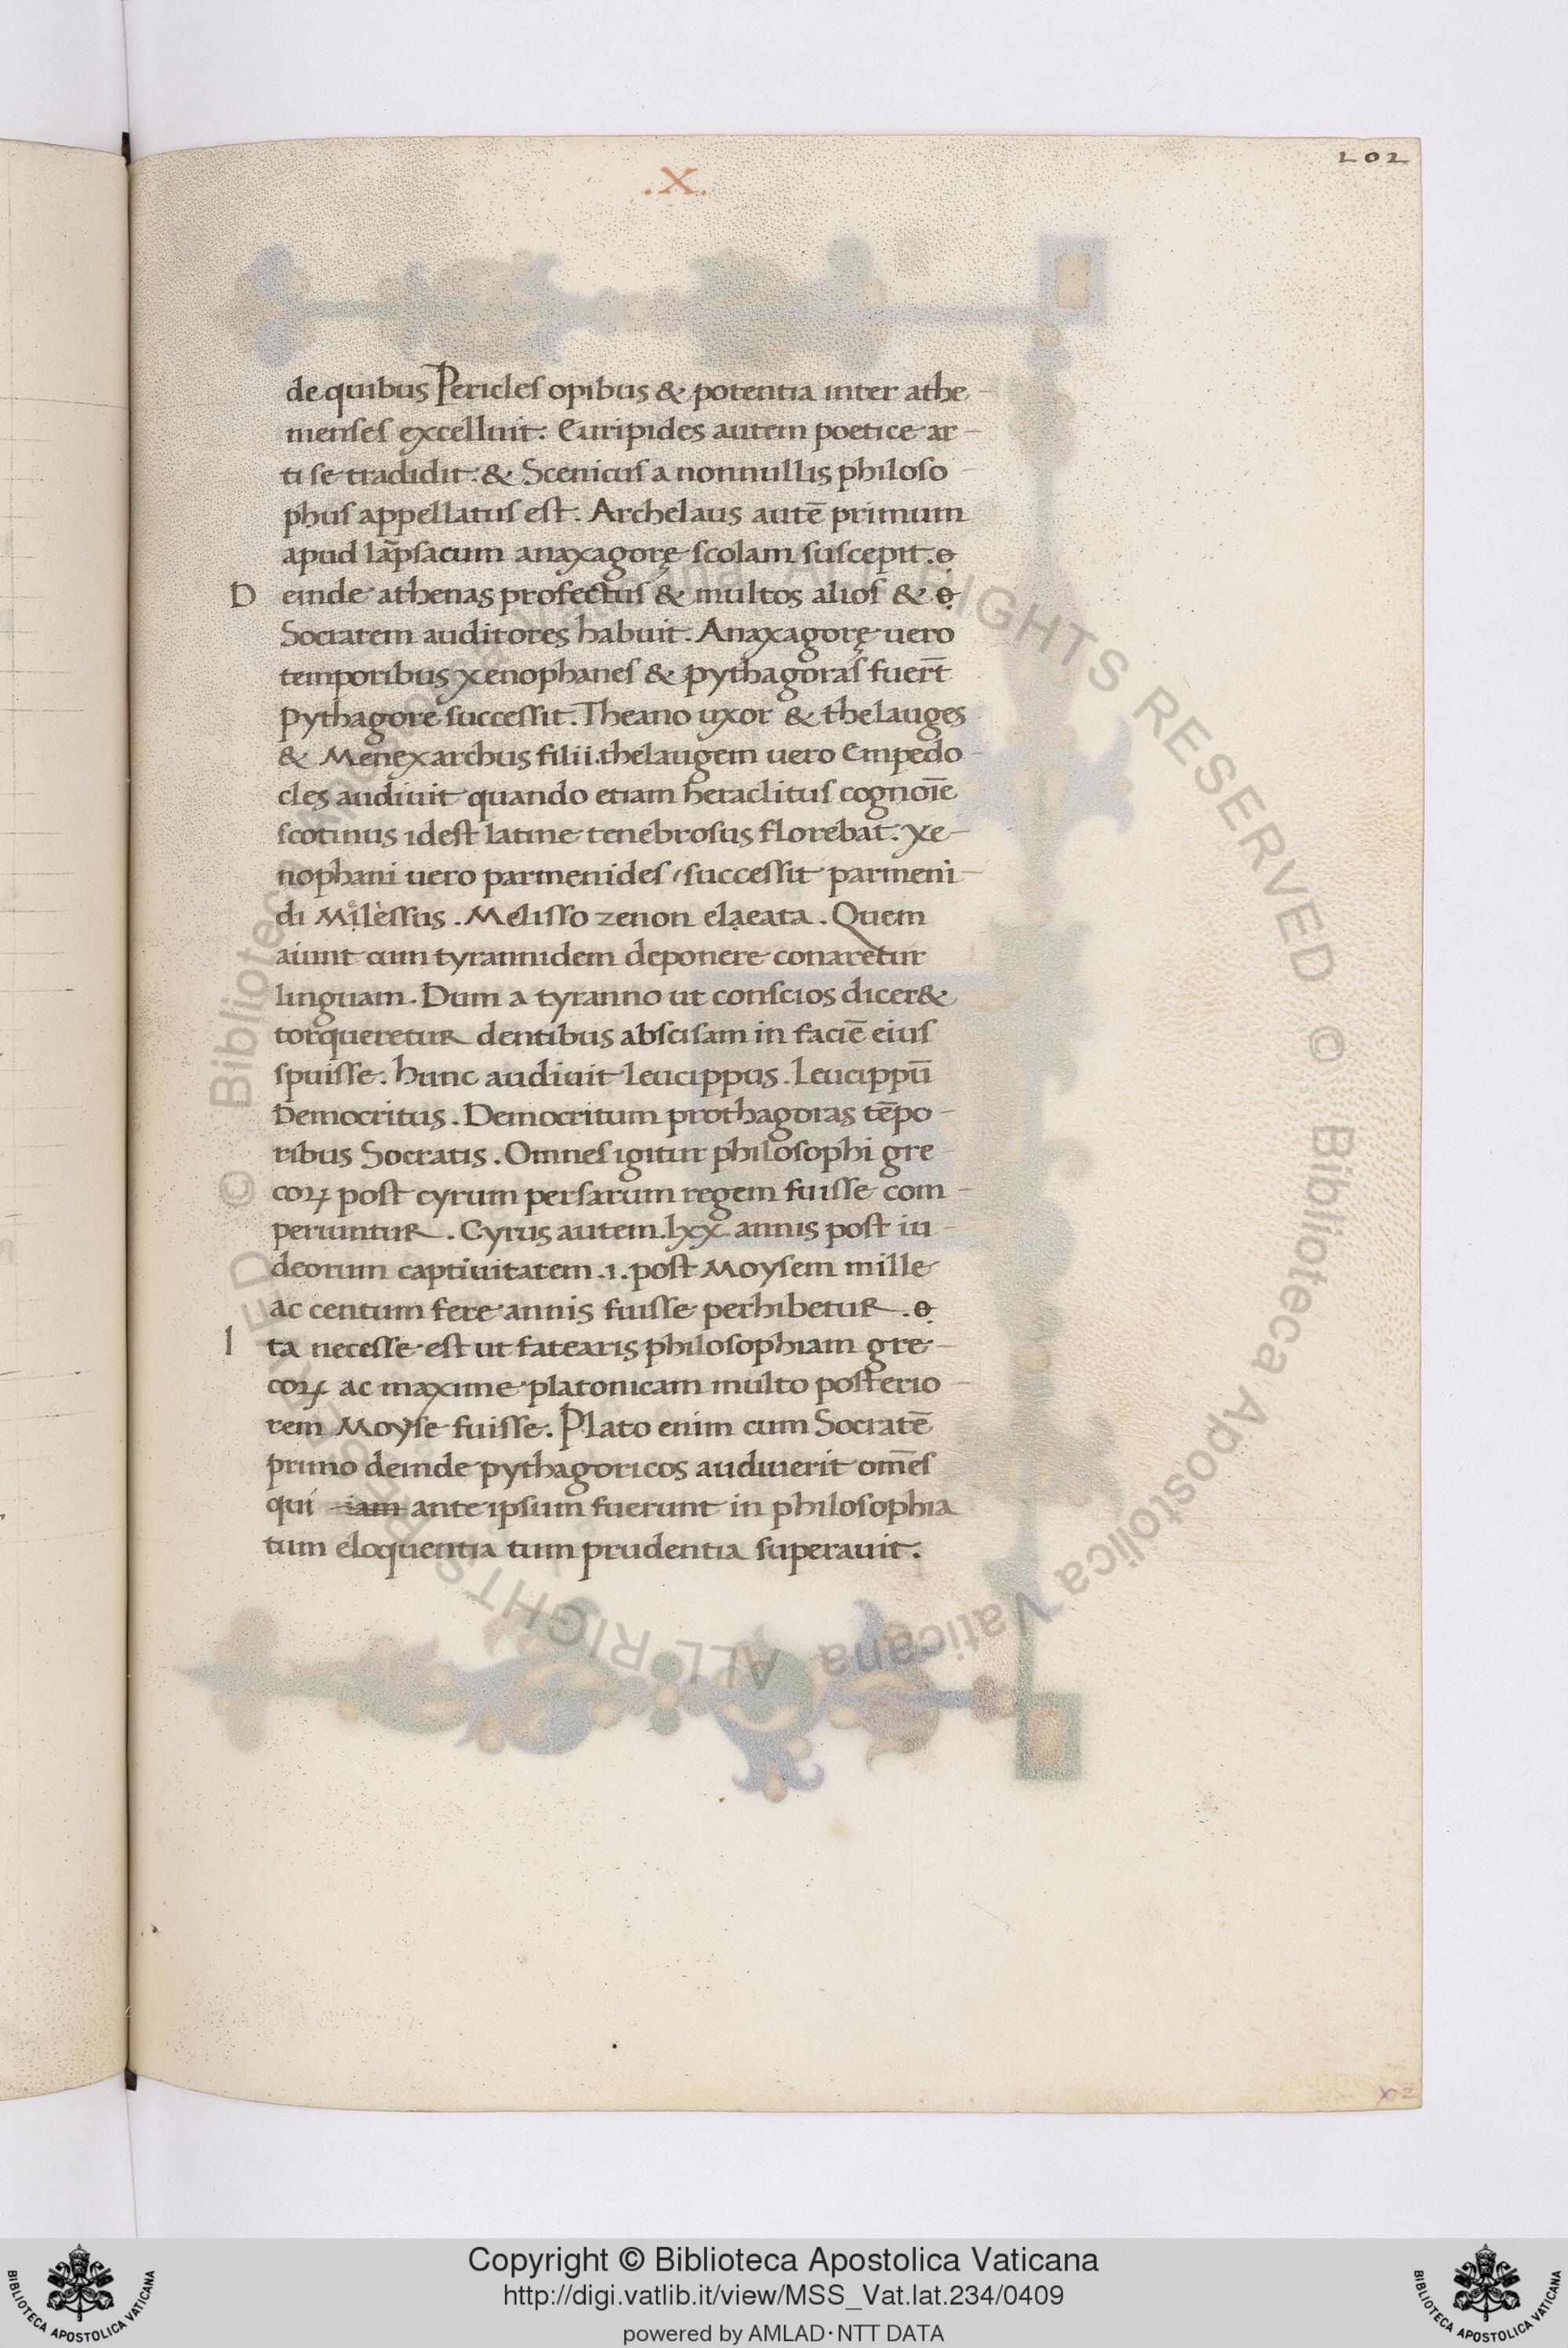 202
.X.
de quibus Pericles opibus & potentia inter athe-
nienses excelluit. Euripides autem poetice ar-
ti se tradidit. & Scenicus a nonnullis philoso-
phus appellatus est. Archelaus autē primum
apud lāpsacum anaxagorę scolam suscepit. ẹ
D einde athenas profectus & multos alios & ẹ
Socratem auditores habuit. Anaxagorę uero
temporibus xenophanes & pythagoras fuer̄t
pythagore successit. Theano uxor & thelauges
& Menexarchus filii. thelaugem uero Empedo-
cles audiuit quando etiam heraclitus cognoīe
scotinus idest latine tenebrosus florebat. Xe-
nophani uero parmenides / successit parmeni-
di Milessus. Melisso zenon elạeata. Quem
aiunt cum tyrannidem deponere conaretur
linguam. Dum a tyranno ut conscios dicer&
torqueretur dentibus abscisam in faciē eius
spuisse. hunc audiuit leucippus. Leucippū
Democritus. Democritum prothagoras tēpo-
ribus Socratis. Omnes igitur philosophi gre-
coꝝ post cyrum persarum regem fuisse com-
periuntur. Cyrus autem .lxx. annis post iu-
deorum captiuitatem .1. post Moysem mille
ac centum fere annis fuisse perhibetur. ẹ
I ta necesse est ut fatearis philosophiam gre-
coꝝ ac maxime platonicam multo posterio-
rem Moyse fuisse. Plato enim cum Socratē
primo deinde pythagoricos audiuerit om̄es
qui iam ante ipsum fuerunt in philosophia
tum eloquentia tum prudentia superauit.
X 2
© Biblioteca Apostolica Vaticana ALL RIGHTS RESERVED © Biblioteca Apostolica Vaticana ALL RIGHTS RESERVED
Copyright © Biblioteca Apostolica Vaticana
http://digi.vatlib.it/view/MSS_Vat.lat.234/0409
powered by AMLAD·NTT DATA
BIBLIOTECA APOSTOLICA VATICANA
BIBLIOTECA APOSTOLICA VATICANA